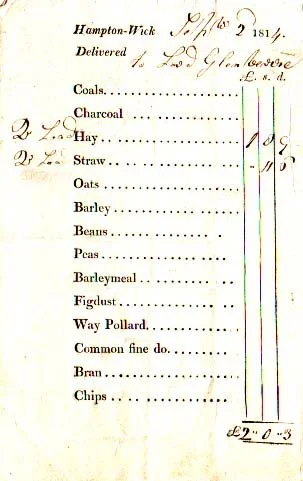 Hampton-Wick Sepr 2d 1814.
Delivered
to Lord Glenbervie
£. s. d.
Coals
Charcoal
Hay
Straw
Oats
Barley
Beans
Peas
Barleymeal
Figdust
Way Pollard
Common fine do.
Bran
Chips
£2 " 0 " 3